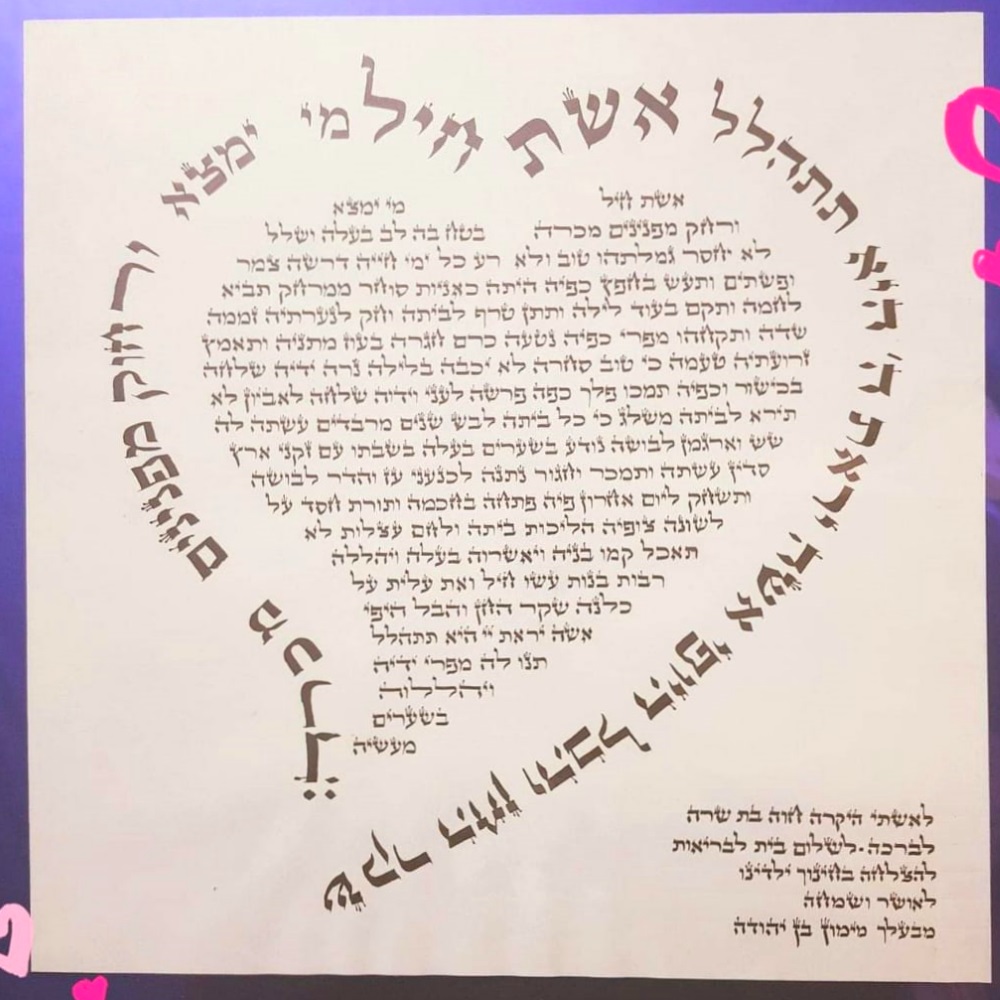 אשת חיל מי ימצא ורחוק מפנינים מכרה:
שקר החן והבל היופי אשה יראת ה' היא תתהלל
אשת חיל מי ימצא
ורחק מפנינים מכרה בטח בה לב בעלה ושלל
לא יחסר גמלתהו טוב ולא רע כל ימי חייה דרשה צמר
ופשתים ותעש בחפץ כפיה היתה כאניות סוחר ממרחק תביא
לחמה ותקם בעוד לילה ותתן טרף לביתה וחק לנערתיה זממה
שדה ותקחהו מפרי כפיה נטעה כרם חגרה בעוז מתניה ותאמץ
זרועתיה טעמה כי טוב סחרה לא יכבה בלילה נרה ידיה שלחה
בכישור וכפיה תמכו פלך כפה פרשה לעני וידיה שלחה לאביון לא
תירא לביתה משלג כי כל ביתה לבש שנים מרבדים עשתה לה
שש וארגמן לבושה נודע בשערים בעלה בשבתו עם זקני ארץ
סדין עשתה ותמכר וחגור נתנה לכנעני עז והדר לבושה
ותשחק ליום אחרון פיה פתחה בחכמה ותורת חסד על
לשונה צופיה הליכות ביתה ולחם עצלות לא
תאכל קמו בניה ויאשרוה בעלה ויהללה
רבות בנות עשו חיל ואת עלית על
כלנה שקר החן והבל היפי
אשה יראת יי היא תתהלל
תנו לה מפרי ידיה
ויהללוה
בשערים
מעשיה
לאשתי היקרה חוה בת שרה
לברכה.לשלום בית לבריאות
להצלחה בחינוך ילדינו
לאושר ושמחה
מבעלך מימון בן יהודה